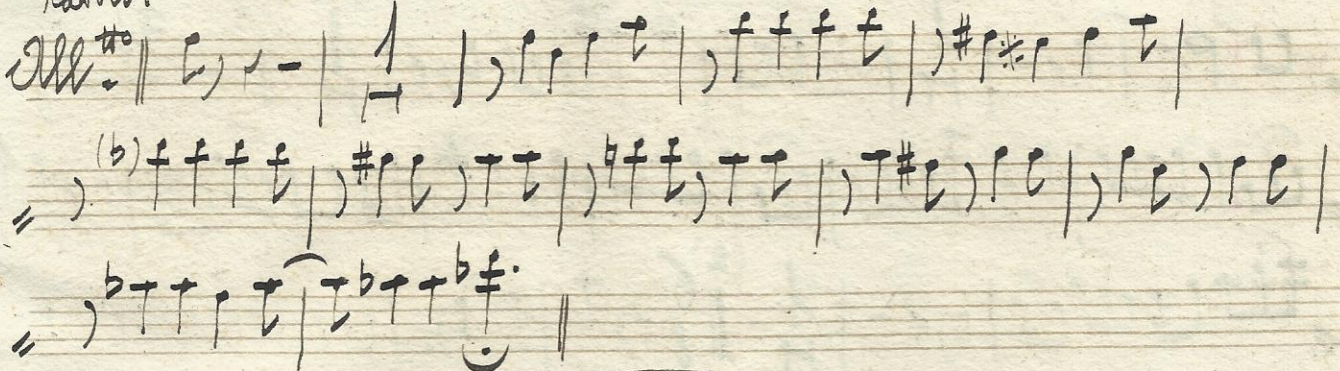 All.tto
1